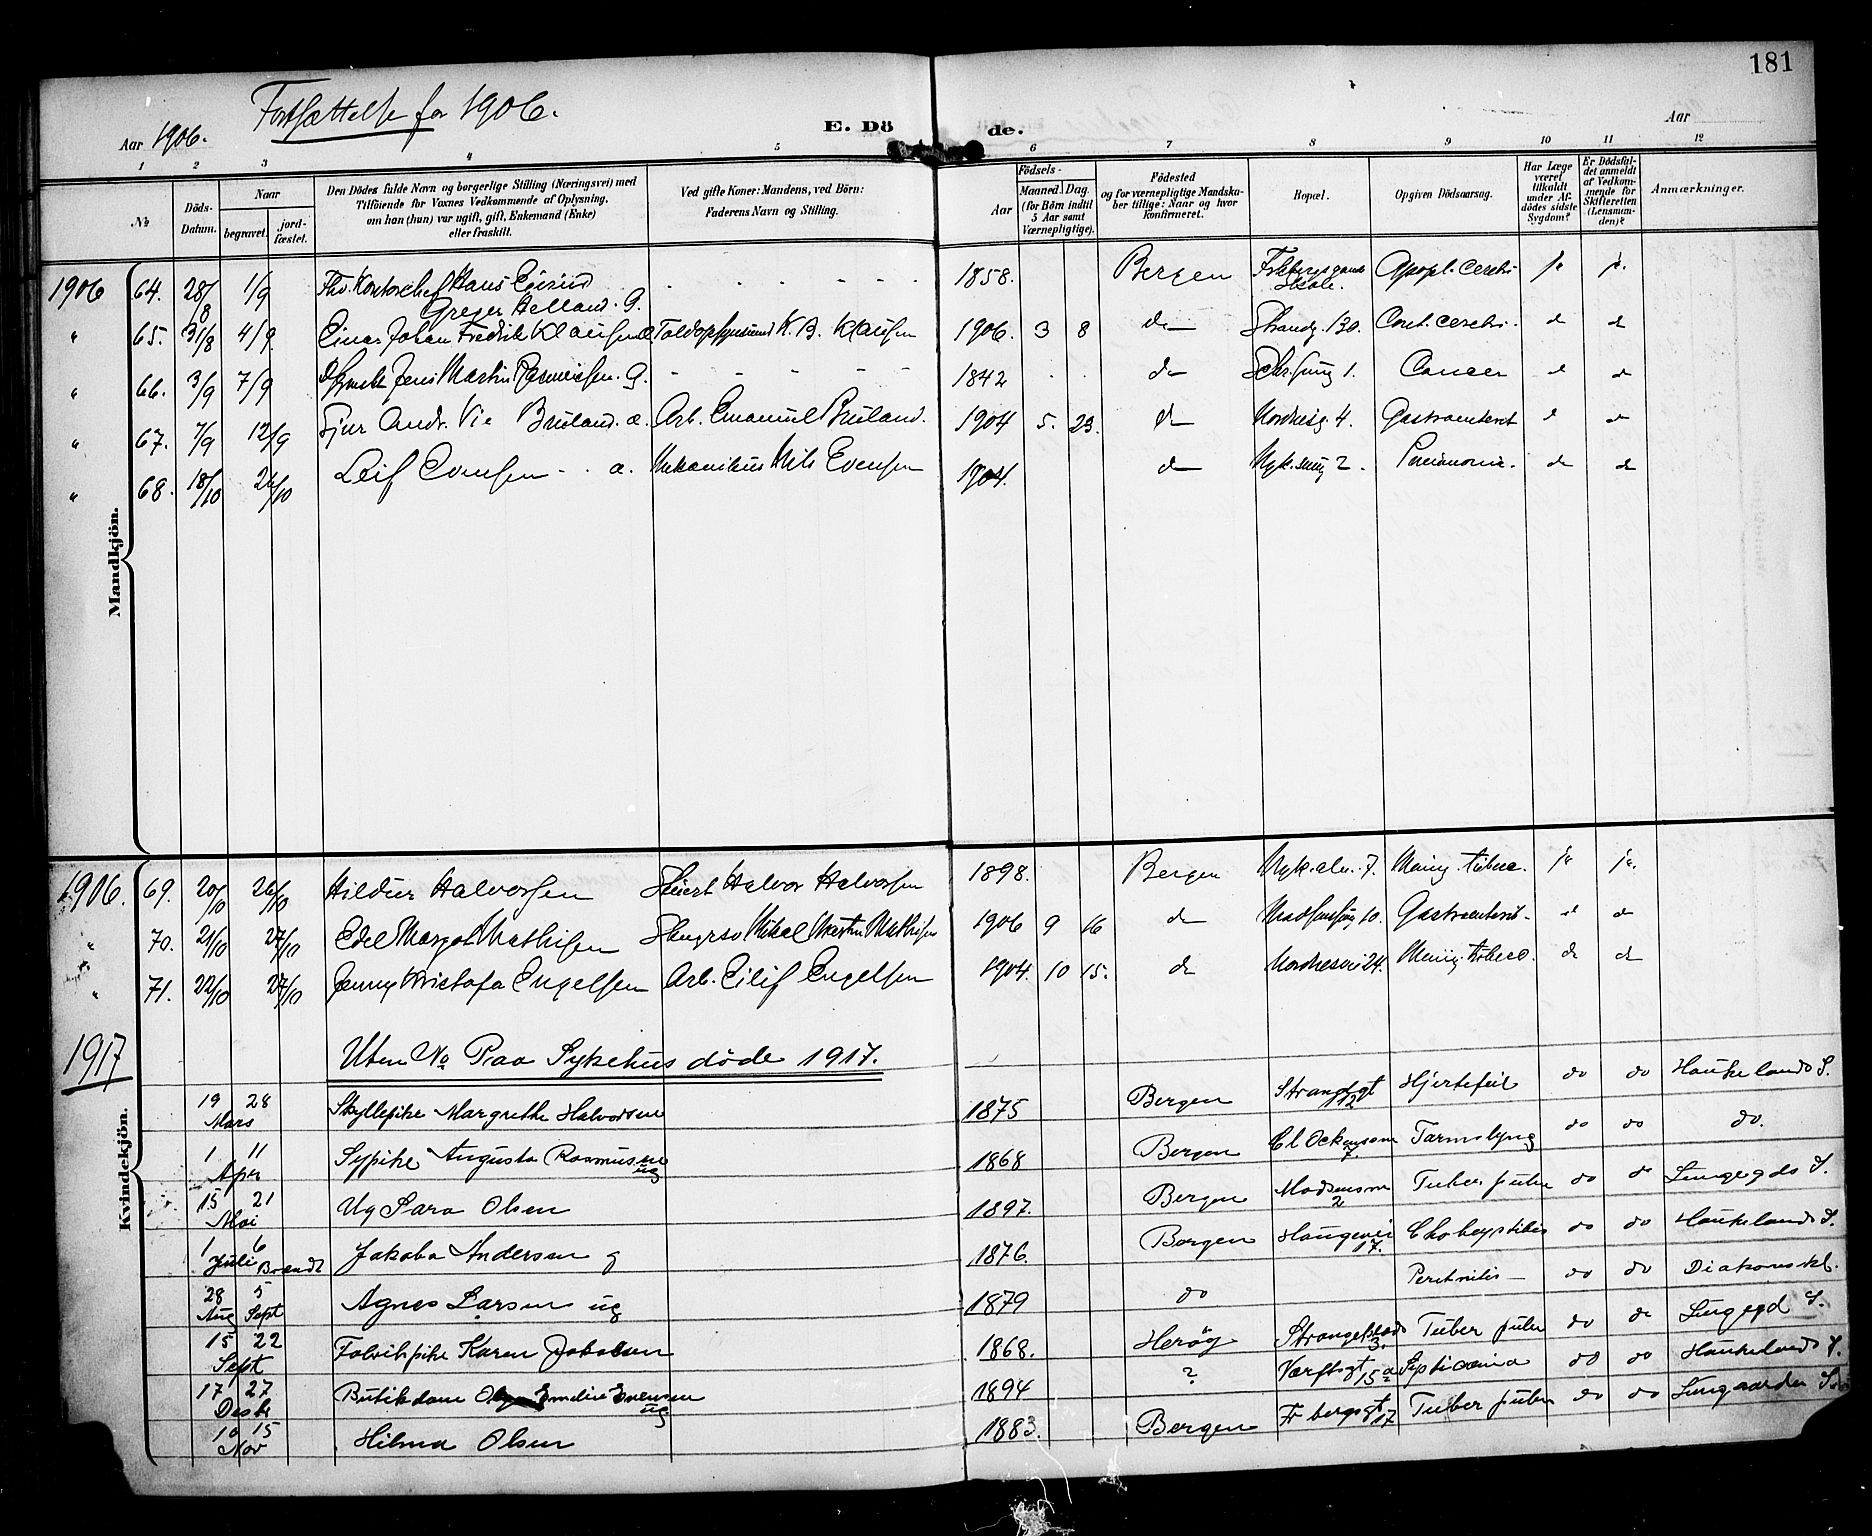 181
Fortsættelse for 1906.
Aar 1906.
E. Døde.
Aar
1 2 3 4 5 6 7 8 9 10 11 12
№
Døds-Datum.
Naar
begravet.
jord-fæstet.
Den Dødes fulde Navn og borgerlige Stilling (Næringsvei) med
Tilføiende for Voxnes Vedkommende af Oplysning,
om han (hun) var ugift, gift, Enkemand (Enke)
eller fraskilt.
Ved gifte Koner: Mandens, ved Børn:
Faderens Navn og Stilling.
Fødsels-
Aar
Maaned. Dag.
(for Børn indtil
5 Aar samt
Værnepligtige).
Fødested
og for værnepligtige Mandska-
ber tillige: Naar og hvor
konfirmeret.
Bopæl.
Opgiven Dødsaarsag.
Har Læge
været
tilkaldt
under Af-
dødes sidste
Sygdom?
Er Dødsfal-
det anmeldt
af Vedkom-
mende for
Skifteretten
(Lensman-
den)?
Anmærkninger.
Mandkjøn.
1906 64. 28/8 1/9 Hans
Greger Helland. g. 1858. Bergen Apopl. cerebri ja ja.
" 65. 31/8 4/9 Einar Johan Fredrik Klausen a K. B. Klausen 1906. 3 8 do Strandg. 130. cerebri. d d
" 66. 3/9 7/9 Jens Martin Rasmussen. g. 1842 do 1. Cancer d d
" 67. 7/9 12/9 Gjur Andr. Vie Bruland. a. Arb. Emanuel Bruland. 1904 5. 23. do Nordnesg. 4. Gastroenterit d d
" 68. 18/10 24/10 Leif Evensen a. Mekanikus Nils Evensen 1904. do 2. Pneumonie. d d
Kvindekjøn.
1906. 69. 20/10 26/10 Hildur Halvorsen Halvor Halvorsen 1898. Bergen Nyk.alm. 7. Mening. tuberc. ja ja.
" 70. 21/10 27/10 Edel Margot Mathisen Mikal Martin Mathisen 1906 9 16 d 10. Gastroenterit d d
" 71. 22/10 27/10 Jenny Kristofa Engelsen Arb. Eilif Engelsen 1904. 10 15. d Nordnesvei 24. Mening. tuberc. d d
1917 Uten No Paa Sykehus døde 1917.
19 Mars 28 Skyllepike Margrethe Halvorsen 1875 Bergen Strangegt 12 Hjertefeil do do Haukelands S.
1 Apr 11 Sypike Augusta Rasmussen ug 1868 Bergen Cl Ockenssm 7 Tarmslyng do do do.
15 Mai 21 Ug Sara Olsen 1897. Bergen Madsensm 2 Tuber pulm do do Lungegds S.
1 Juli 6 Brændt Jakoba Andersen g 1876. Bergen Haugevei 17. do do Haukelands S.
28 Aug 5 Sept Agnes Larsen ug 1879 do Peritonitis do do Diakoniskl.
15 Sept 22 Fabrikpike Karen Jakobsen 1868. Herøy 3. Tuber pulm do do Lungegd S.
17 Desbr 27 Butikdame Emelie Evensen ug 1894 ? Værftsgt 15a Septicæmia do do Haukelands S.
10 Nov 15 Hilma Olsen 1883. Bergen Fr bergsgt 17 Tuber pulm do do Lungaarden